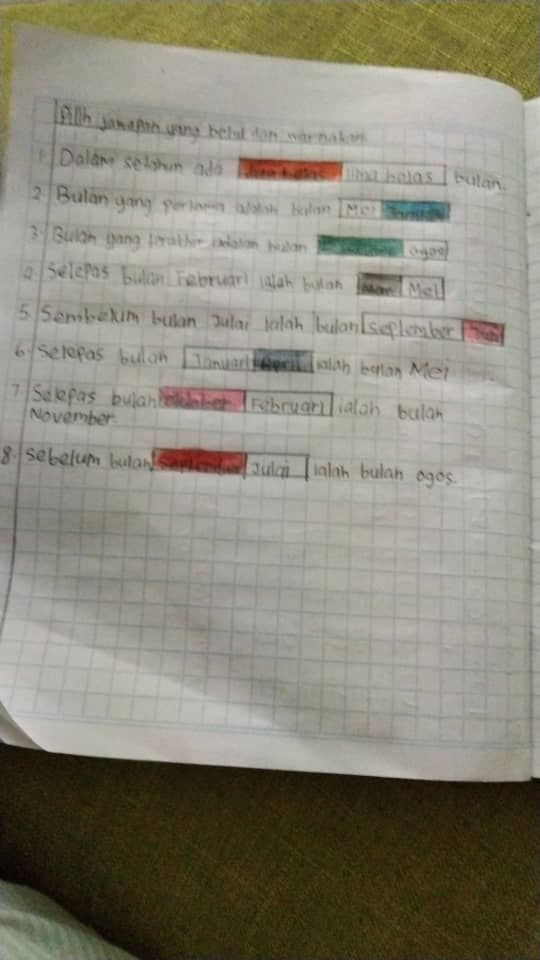 Pilih jawapan yang betul dan warnakan.
1. Dalam setahun ada dua belas lima belas bulan.
2. Bulan yang pertama adalah bulan Mei Januari
3. Bulan yang terakhir adalah bulan ogos
4. Selepas bulan Februari ialah bulan Mac Mei
5. Sembelum bulan Julai ialah bulan September Jun
6. Selepas bulan Januari April ialah bulan Mei
7. Selepas bulan oktober Februari ialah bulan
November.
8. Sebelum bulan September Julai ialah bulan ogos.